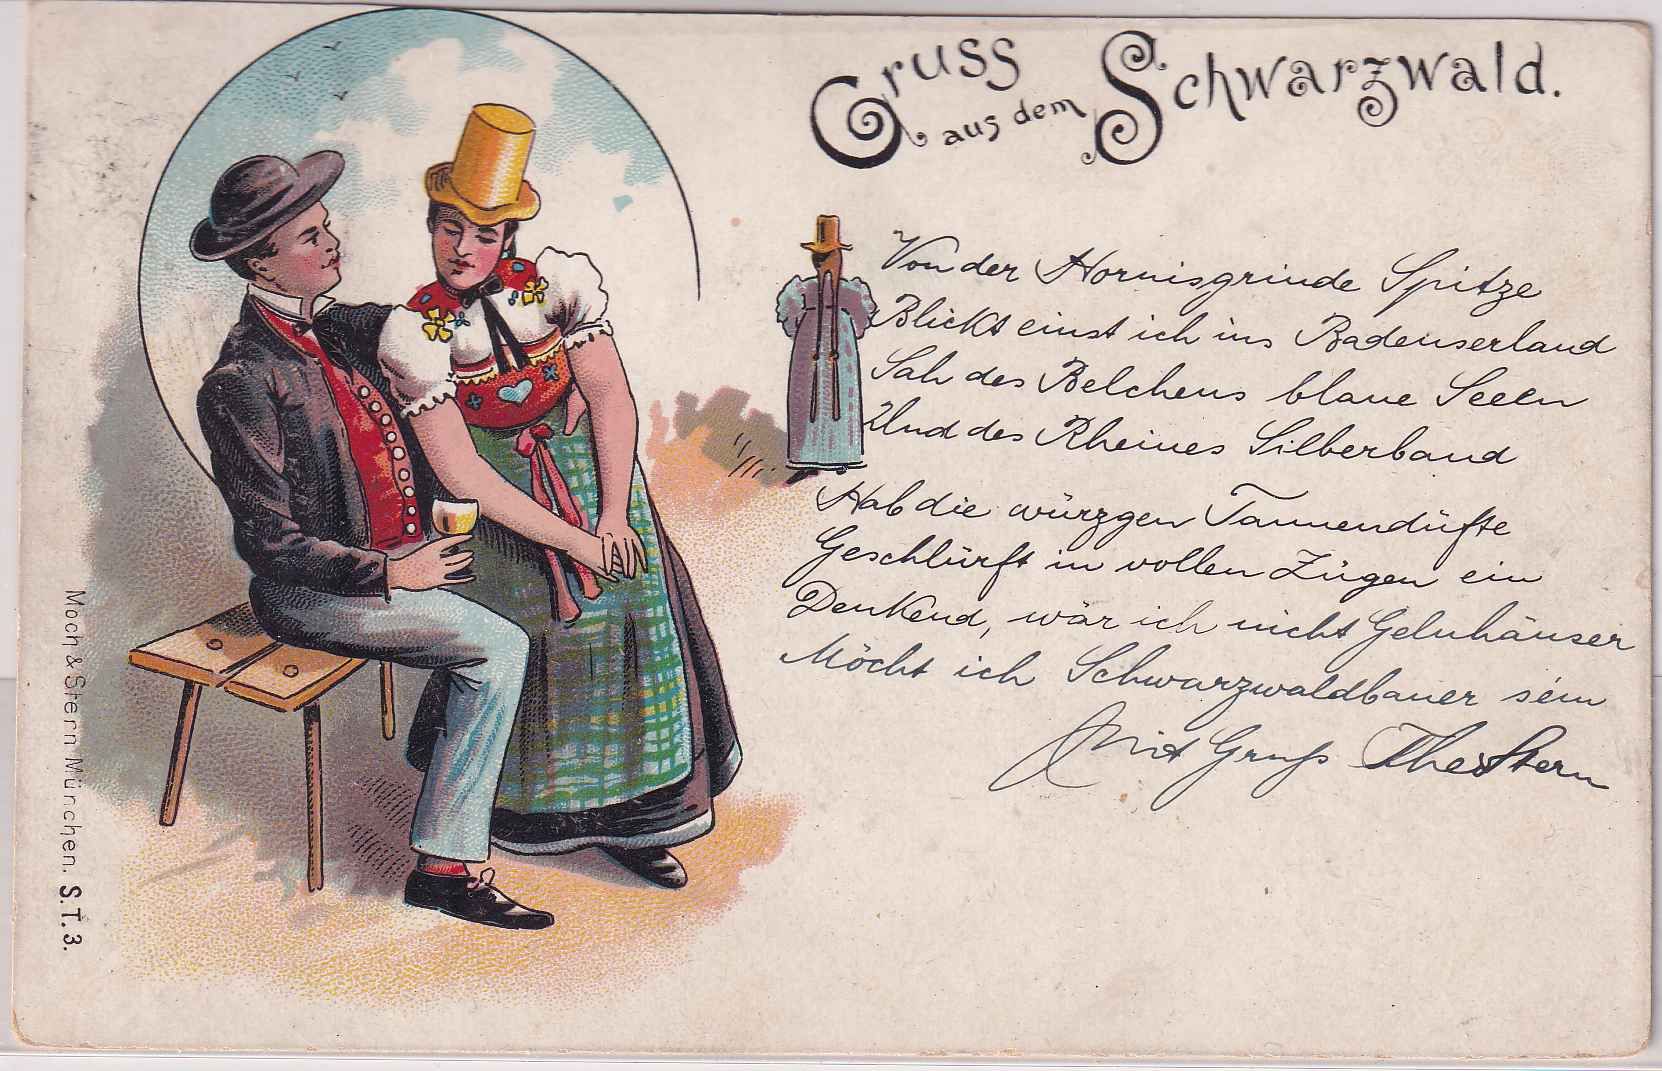 Gruss
aus dem Schwarzwald.
Von der Hornisgrinde Spitze
Blickt einst ich ins Badenserland
Sah des Belchens blaue Seeen
Und des Rheines Silberband
Hab die würzgen Tannendüfte
Geschlürft in vollen Zügen ein
Denkend, wär ich nicht Gelnhäuser
Möcht ich Schwarzwaldbauer sein
Mit Gruß Theo Stern
Moch & Stern München. S.T.3.